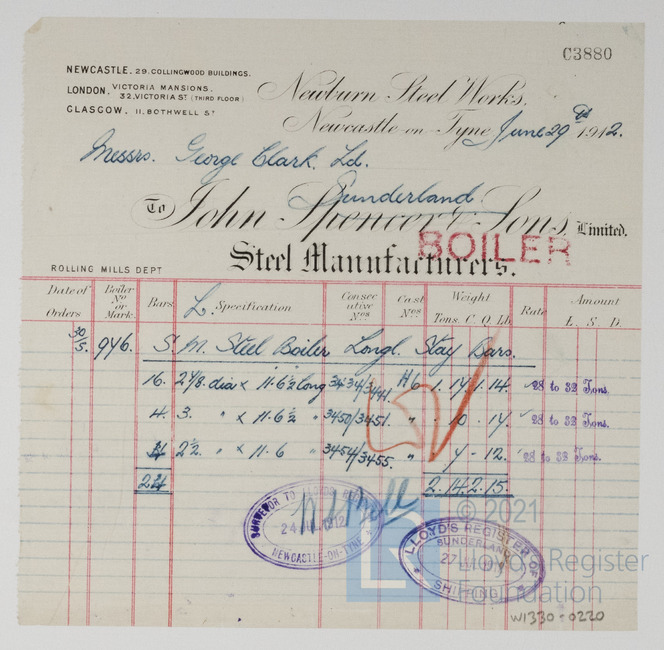 C3880
NEWCASTLE, 29, COLLINGWOOD BUILDINGS.
LONDON, VICTORIA MANSIONS,
32, VICTORIA ST (THIRD FLOOR)
GLASGOW, 11, BOTHWELL ST
Newburn Steel Works,
Newcastle-on-Tyne, June 29th 1912.
Messrs. George Clark. Ld.
Sunderland.
To John Spencer & Sons, Limited.
BOILER
Steel Manufacturers.
ROLLING MILLS DEPT
Date of Orders Boiler No or Mark. Bars. L. Specification Consecutive Nos Cast Nos Weight Tons. C. Q. Lb. Rate Amount L. S. D.
30/5. 946. S. M. Steel Boiler Longl. Stay Bars.
16. 2 7/8. dia x 11.6½ long H6 1. 14. 1. 14. 28 to 32 Tons.
4. 3. " x 11.6½ " 3450/3451. " 10 - 14. 28 to 32 Tons.
2½. " x 11.6 " 3454/3455. " 28 to 32 Tons.
2. 14. 2. 15.
SURVEYOR TO
24 JUL 1912
NEWCASTLE-ON-TYNE
LLOYD'S REGISTER OF
SUNDERLAND
27
SHIPPING
© 2021
Lloyd's Register
Foundation
W1330-0220